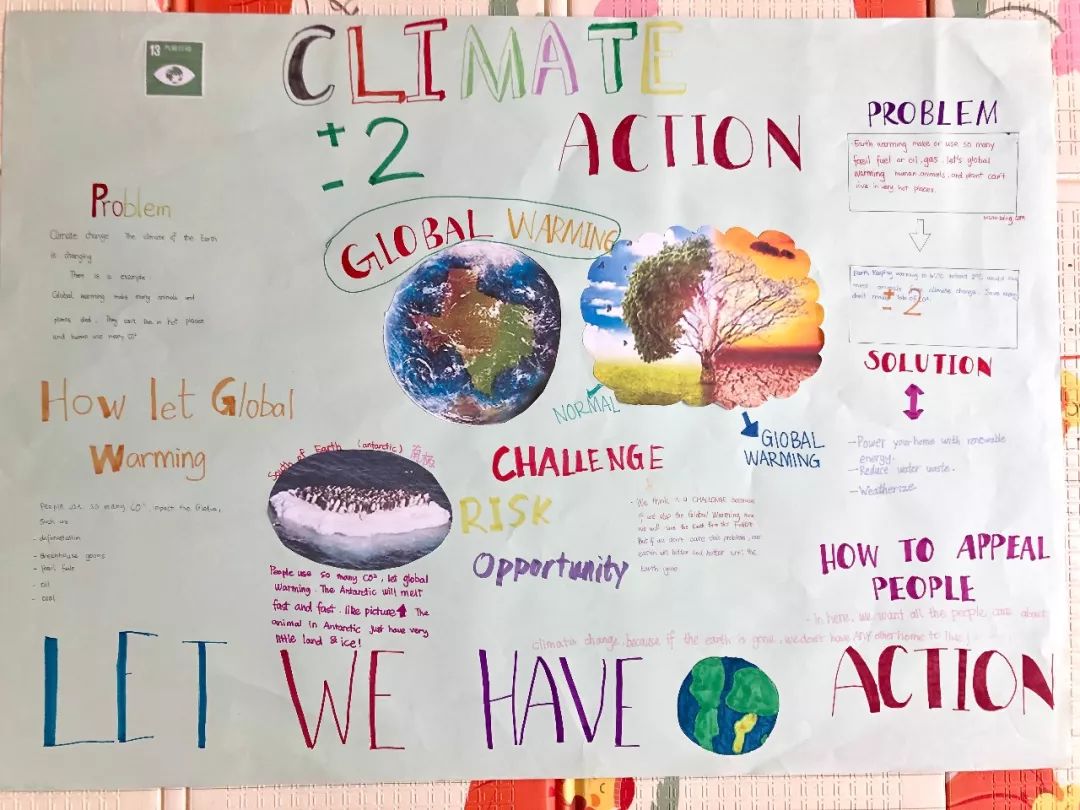 13 气候行动
CLIMATE
±2 ACTION
Problem
Climate change. The climate of the Earth
is changing
There is a example.
Global warming make many animals and
plants died. They can't live in hot places
and human use many CO²
GLOBAL WARMING
NORMAL
GlOBAL
WARMING
PROBLEM
Earth warming make or use so many
fossil fuel or oil, gas. let's global
warming human, animals, and plant can't
live in very hot places.
±2
SOLUTION
-Power your home with renewable
energy.
-Reduce water waste.
-Weatherize
How let Global
Warming
People use so many CO², the Global,
Such us
- deforestation
- Greenhouse
- fossil fuels
- oil
- coal
South of Earth (antarctic) 南极
People use so many CO², let global
Warming. The Antarctic will melt
fast and fast. like picture ⬆ The
animal in Antarctic just have very
little land & ice!
CHALLENGE
RISK
Opportunity
- We think is a CHALLENGE because
if we stop the Global Warming, now
we will see the Earth the Future
But if we don't care this problem, our
earth will hotter and hotter until the
Earth gone
HOW TO APPEAL
PEOPLE
- In here, we want all the people care about
climate change, because if the earth is gone, we don't have Any other home to live!
LET WE HAVE ACTION